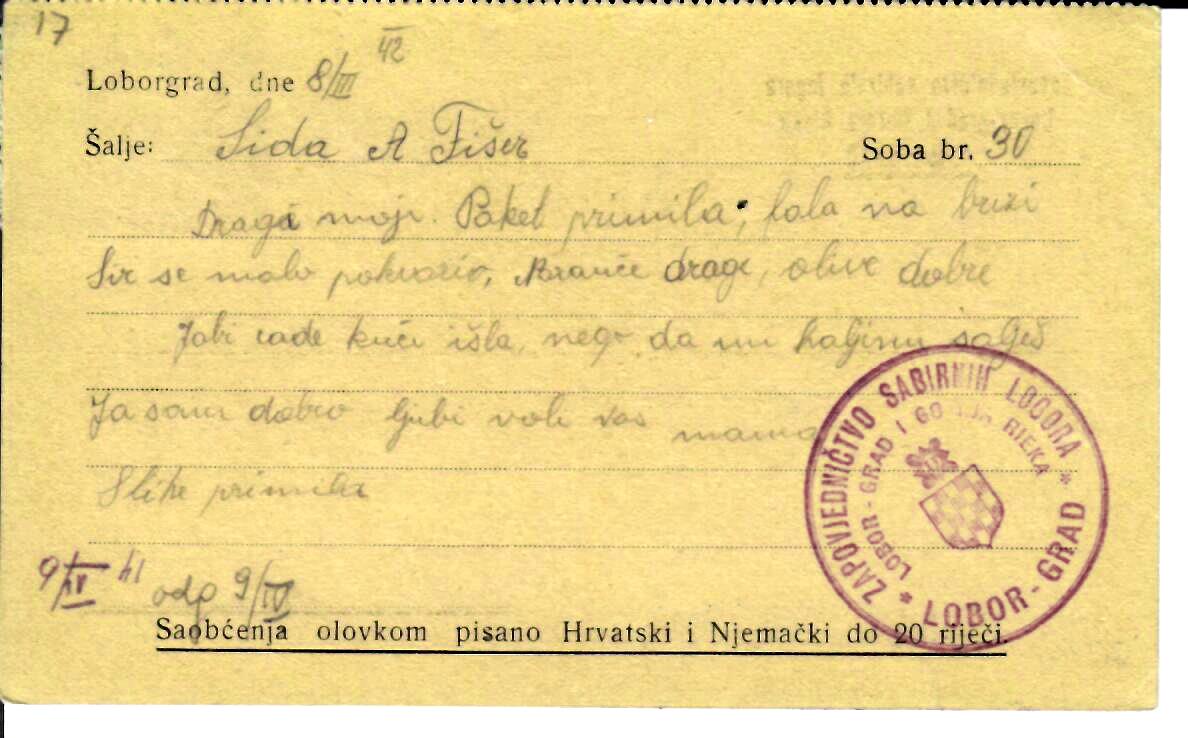 17
Loborgrad, dne 8/III 42
Šalje: Sida A Fišer Soba br. 30
Dragi moji. Paket primila, fala na brizi
Sir se malo pokvario, drage, olive dobre
Ja bi rade kući išla, nego da mi haljinu šalješ
Ja sam dobro ljubi voli vas mama
Slike primila
9/IV 41 odp 9/IV
Saobćenja olovkom pisano Hrvatski i Njemački do 20 riječi.
ZAPOVJEDNIČTVO SABIRNIH LOGORA * LOBOR-GRAD *
LOBOR-GRAD I RIEKA